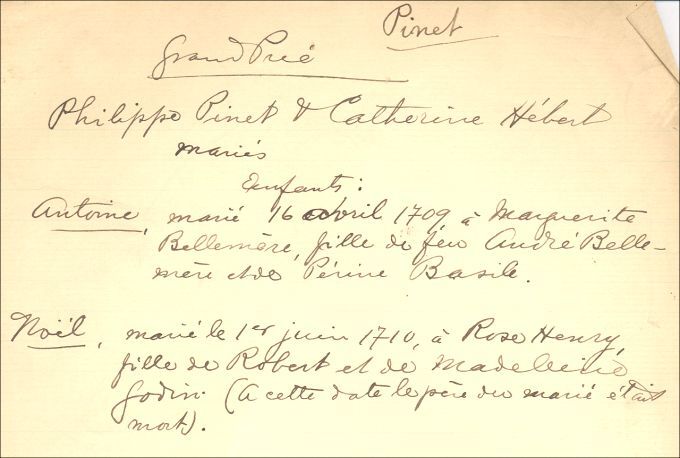 Pinet
Grand Pré
Philippe Pinet & Catherine Hébert
mariés
Enfants :
Antoine, marié 16 avril 1709 à Marguerite
Bellemère, fille de feu André Belle-
mère et de Périne Basile.
Noël, marié le 1er juin 1710, à Rose Henry,
fille de Robert et de Madeleine
Godin. (A cette date le père du marié était
mort).